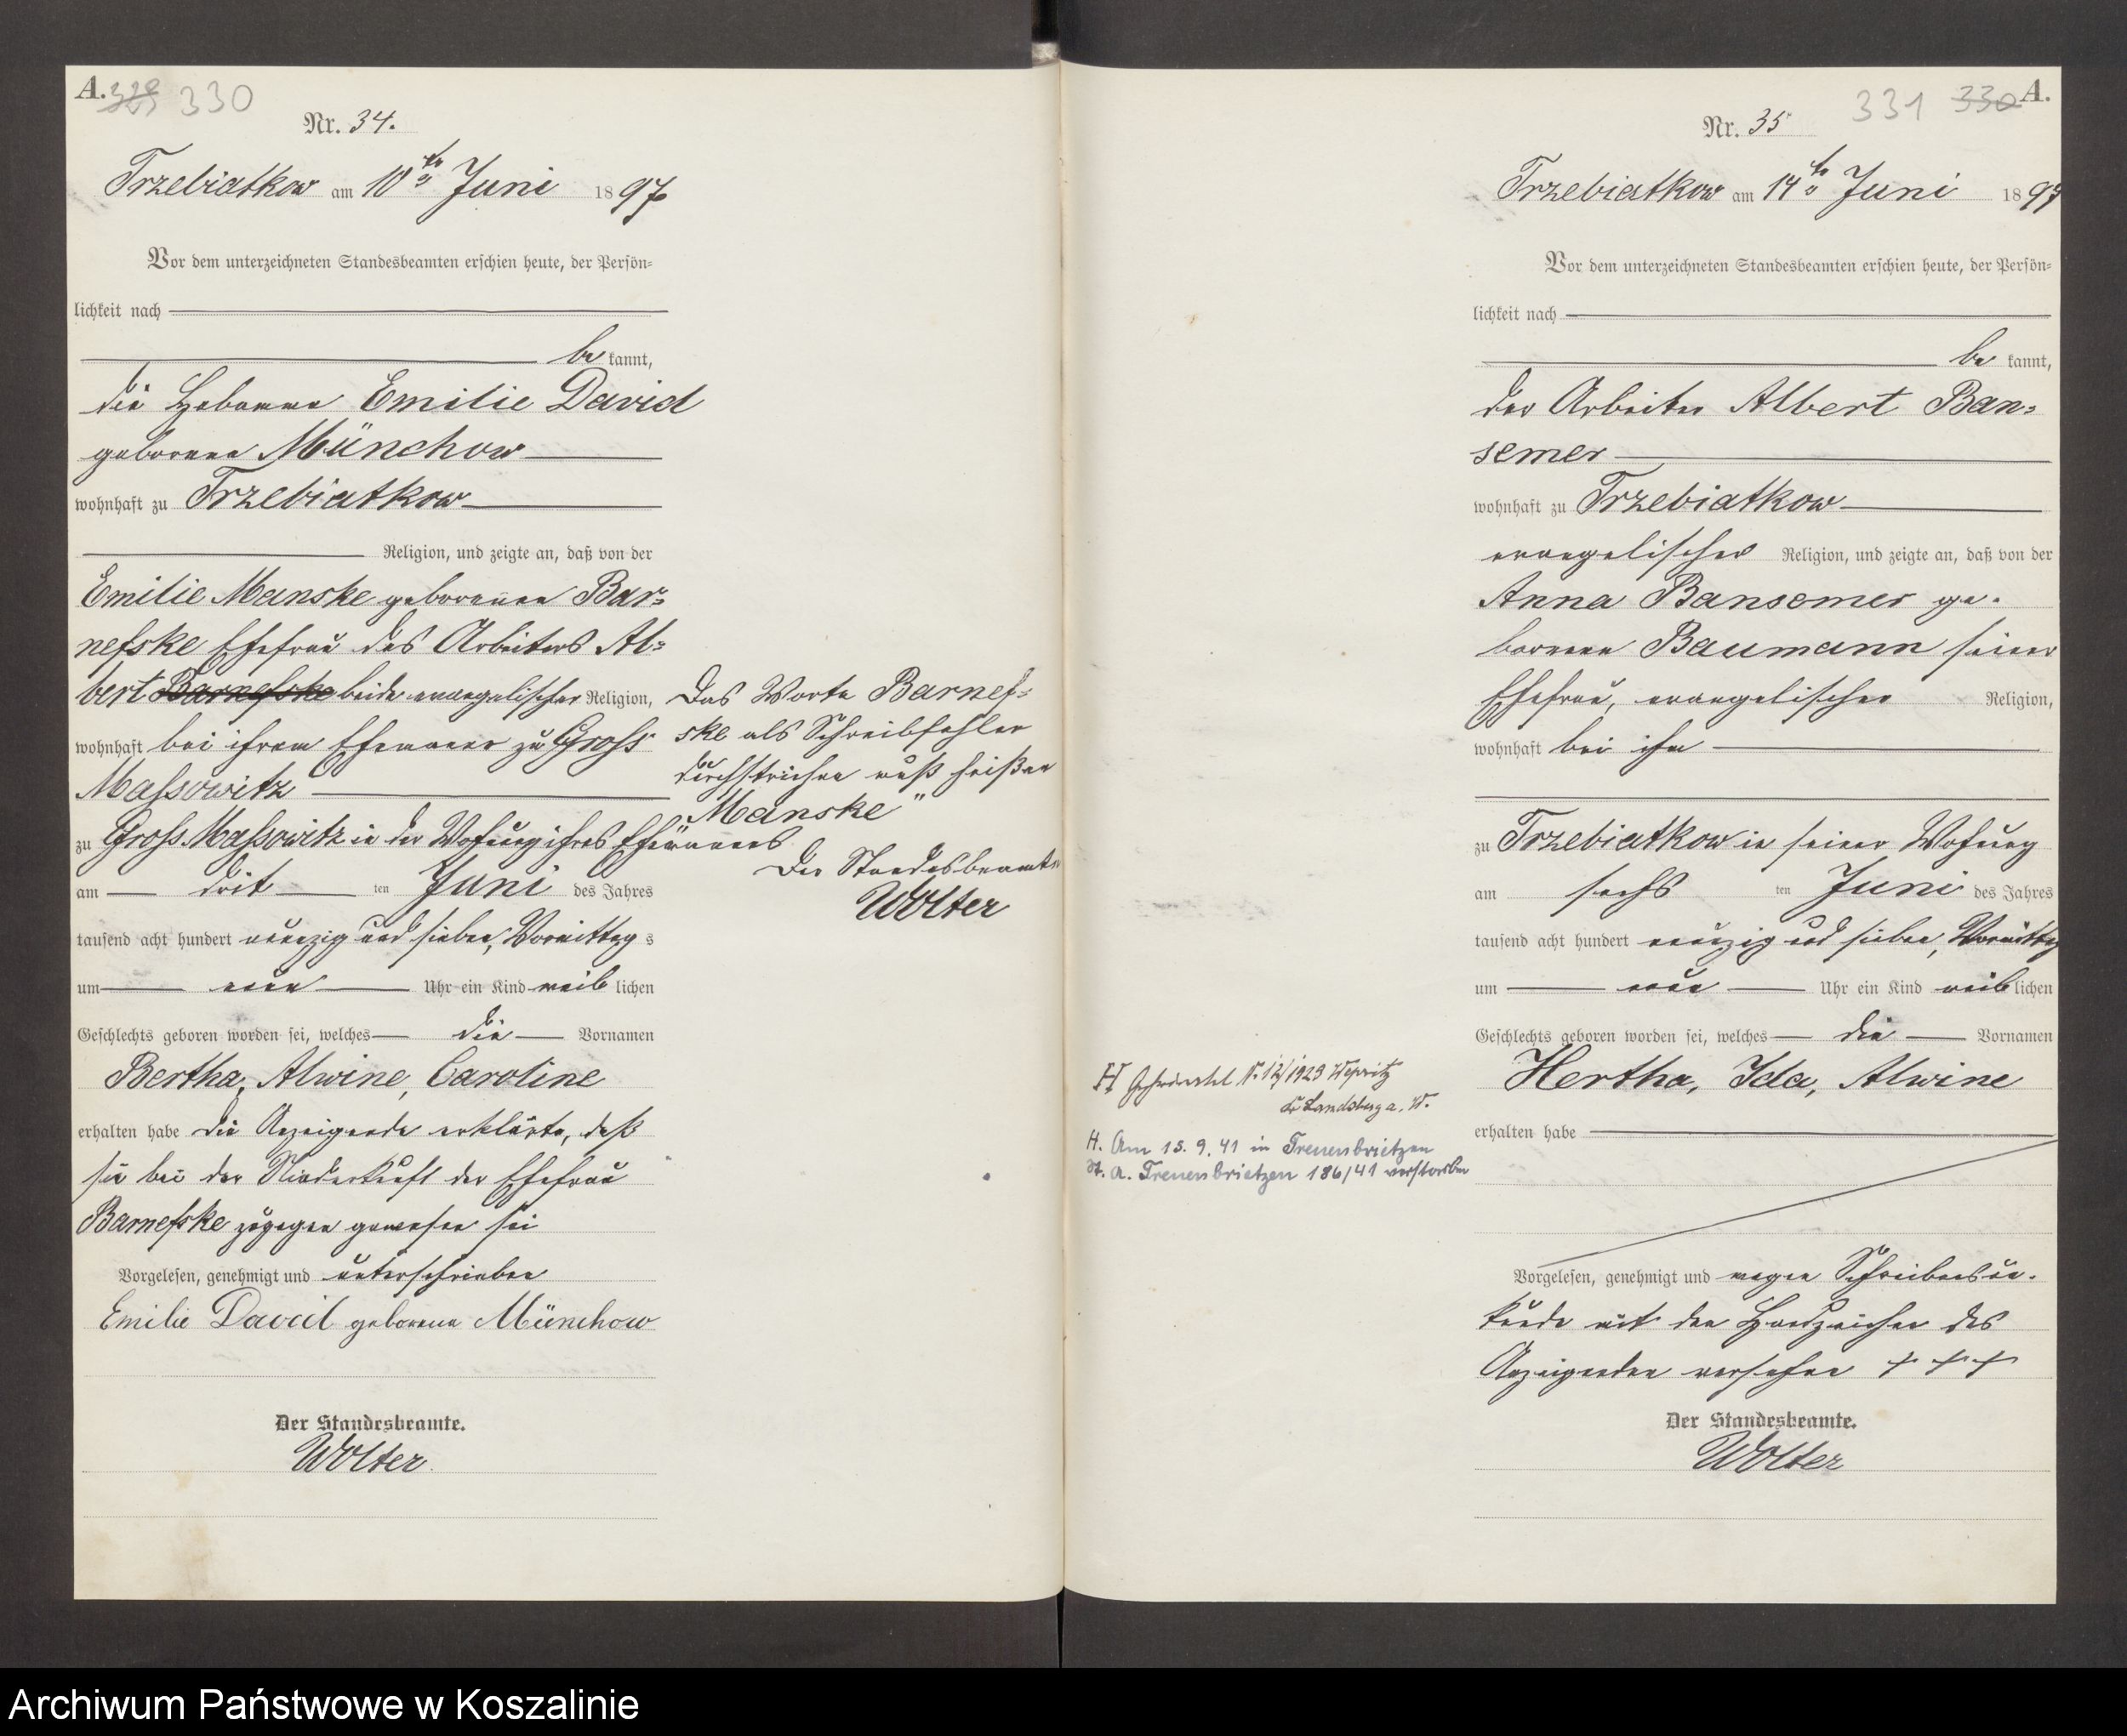 A.
329 330
Nr. 34.
Trzebiatkow am 10ten Juni 1897
Vor dem unterzeichneten Standesbeamten erschien heute, der Persön=
lichkeit nach
be kannt,
die Hebamme Emilie David
geborene Münchow
wohnhaft zu Trzebiatkow
Religion, und zeigte an, daß von der
Emilie Manske geborenen Bar=
nefske Ehefrau des Arbeiters Al=
bert Barnefske beide evangelischer Religion,
wohnhaft bei ihrem Ehemann zu Gross
Massowitz
zu Gross Massowitz in der Wohnung ihres Ehemannes
am dritten Juni des Jahres
tausend acht hundert neunzig und sieben, Vormittags
um neun Uhr ein Kind weiblichen
Geschlechts geboren worden sei, welches die Vornamen
Bertha, Alwine, Caroline
erhalten habe die Anzeigende erklärte, daß
sie bei der Niederkunft der Ehefrau
Barnefske zugegen gewesen sei
Vorgelesen, genehmigt und unterschrieben
Emilie David geborene Münchow
Der Standesbeamte.
Wolter
Das Worte Barnef=
ske als Schreibfehler
durchstrichen muß heißen
Manske"
Der Standesbeamte
Wolter
331 330 A.
Nr. 35
Trzebiatkow am 14ten Juni 1897
Vor dem unterzeichneten Standesbeamten erschien heute, der Persön=
lichkeit nach
be kannt,
der Arbeiter Albert Ban=
semer
wohnhaft zu Trzebiatkow
evangelischer Religion, und zeigte an, daß von der
Anna Bansemer ge-
borenen Baumann seiner
Ehefrau, evangelischer Religion,
wohnhaft bei ihm
zu Trzebiatkow in seiner Wohnung
am sechsten Juni des Jahres
tausend acht hundert neunzig und sieben, Vormittag
um neun Uhr ein Kind weiblichen
Geschlechts geboren worden sei, welches die Vornamen
Hertha, Ida, Alwine
erhalten habe
Vorgelesen, genehmigt und wegen Schreibensun-
kunde mit den Handzeichen des
Anzeigenden versehen + + +
Der Standesbeamte.
Wolter
H Nr. 12/1923 Wepritz
Kr Landsberg a. W.
H. Am 15. 9. 41 in Treuenbrietzen
St. A. Treuenbrietzen 186/41 verstorben
Archiwum Państwowe w Koszalinie